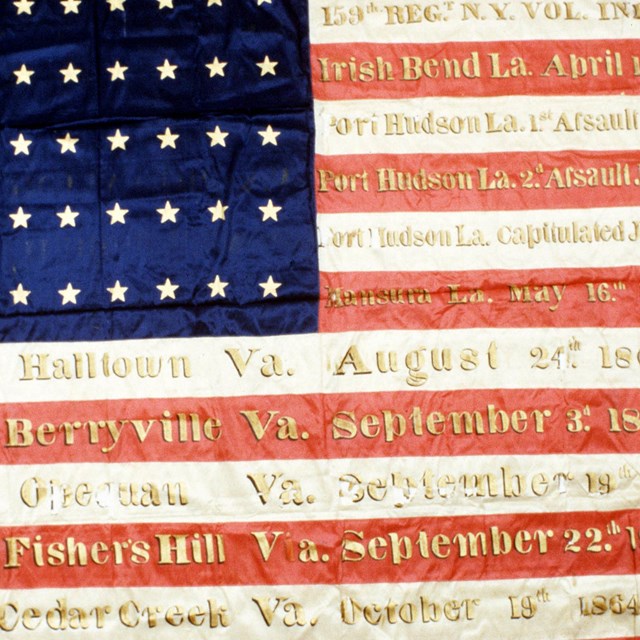 159th REG.T N.Y. VOL. IN
Irish Bend La. April 1
Port Hudson La. 1st Assault
Port Hudson La. 2.d Assault.
Port Hudson La. Capitulated J
Mansura La. May 16.th
Halltown Va. August 24th 186
Berryville Va. September 3d 18
Opequan Va. September 19th
Fisher's Hill Va. September 22.th 1
Cedar Creek Va. October 19th 1864